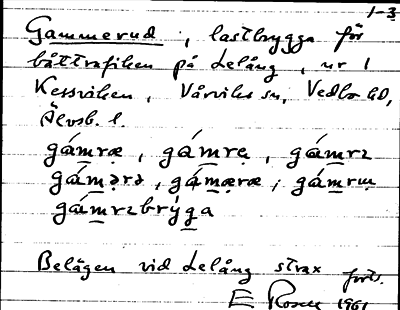 1-3
Gammerud, lastbrygga för
båttrafiken på Lelång, nr 1
Kessviken, Vårviks sn, Vedbo hd,
Älvsb. l.
gámræ, gámrę, gámrɿ
gám̥ərə, gámæræ; gámrɯ
gámrɿbrýga
Belägen vid Lelång strax forts.
E Rosen 1961